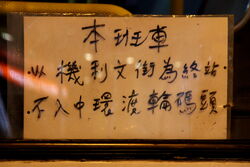 本班車
·以機利文街為終站·
·不入中環渡輪碼頭·